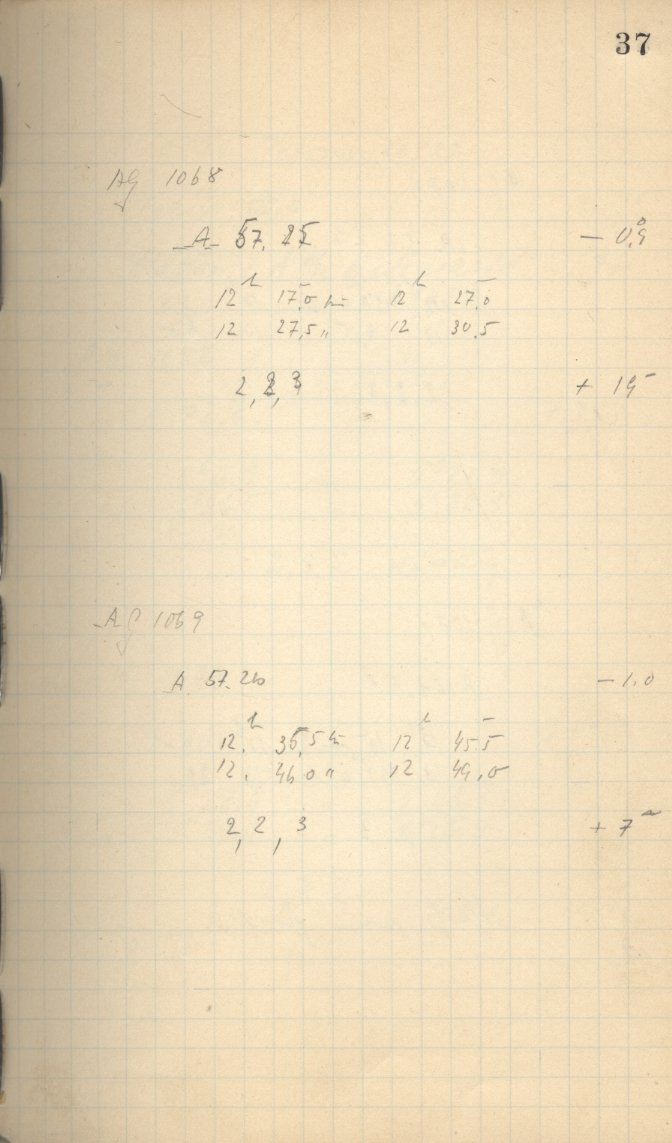 37
AG 1068
A 57.25 − 0,9
12 h 17,0 bis 12 h 27,0
12 27,5 " 12 30.5
2, 2, 3 + 19
AG 1069
A 57.26 − 1,0
12. h 35,5 bis 12 h 45.5
12. 46 0 " 12 49,0
2, 2, 3 + 7